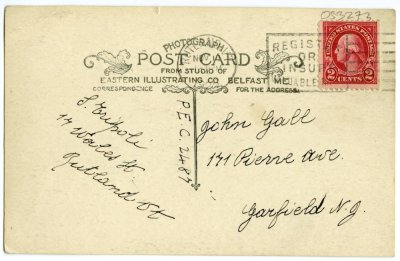 OS3273
PHOTOGRAPHIC
POST CARD
FROM STUDIO OF
EASTERN ILLUSTRATING CO BELFAST
CORRESPONDENCE
FOR THE ADDRESS
REGISTER
OR
INSURE
VALUABLE
UNITED STATES POSTAGE
2 CENTS 2
S. Tripoli
17 Wales St.
Rutland Vt
P.E.C. 2487
John Gall
171 Pierre Ave.
Garfield N.J.